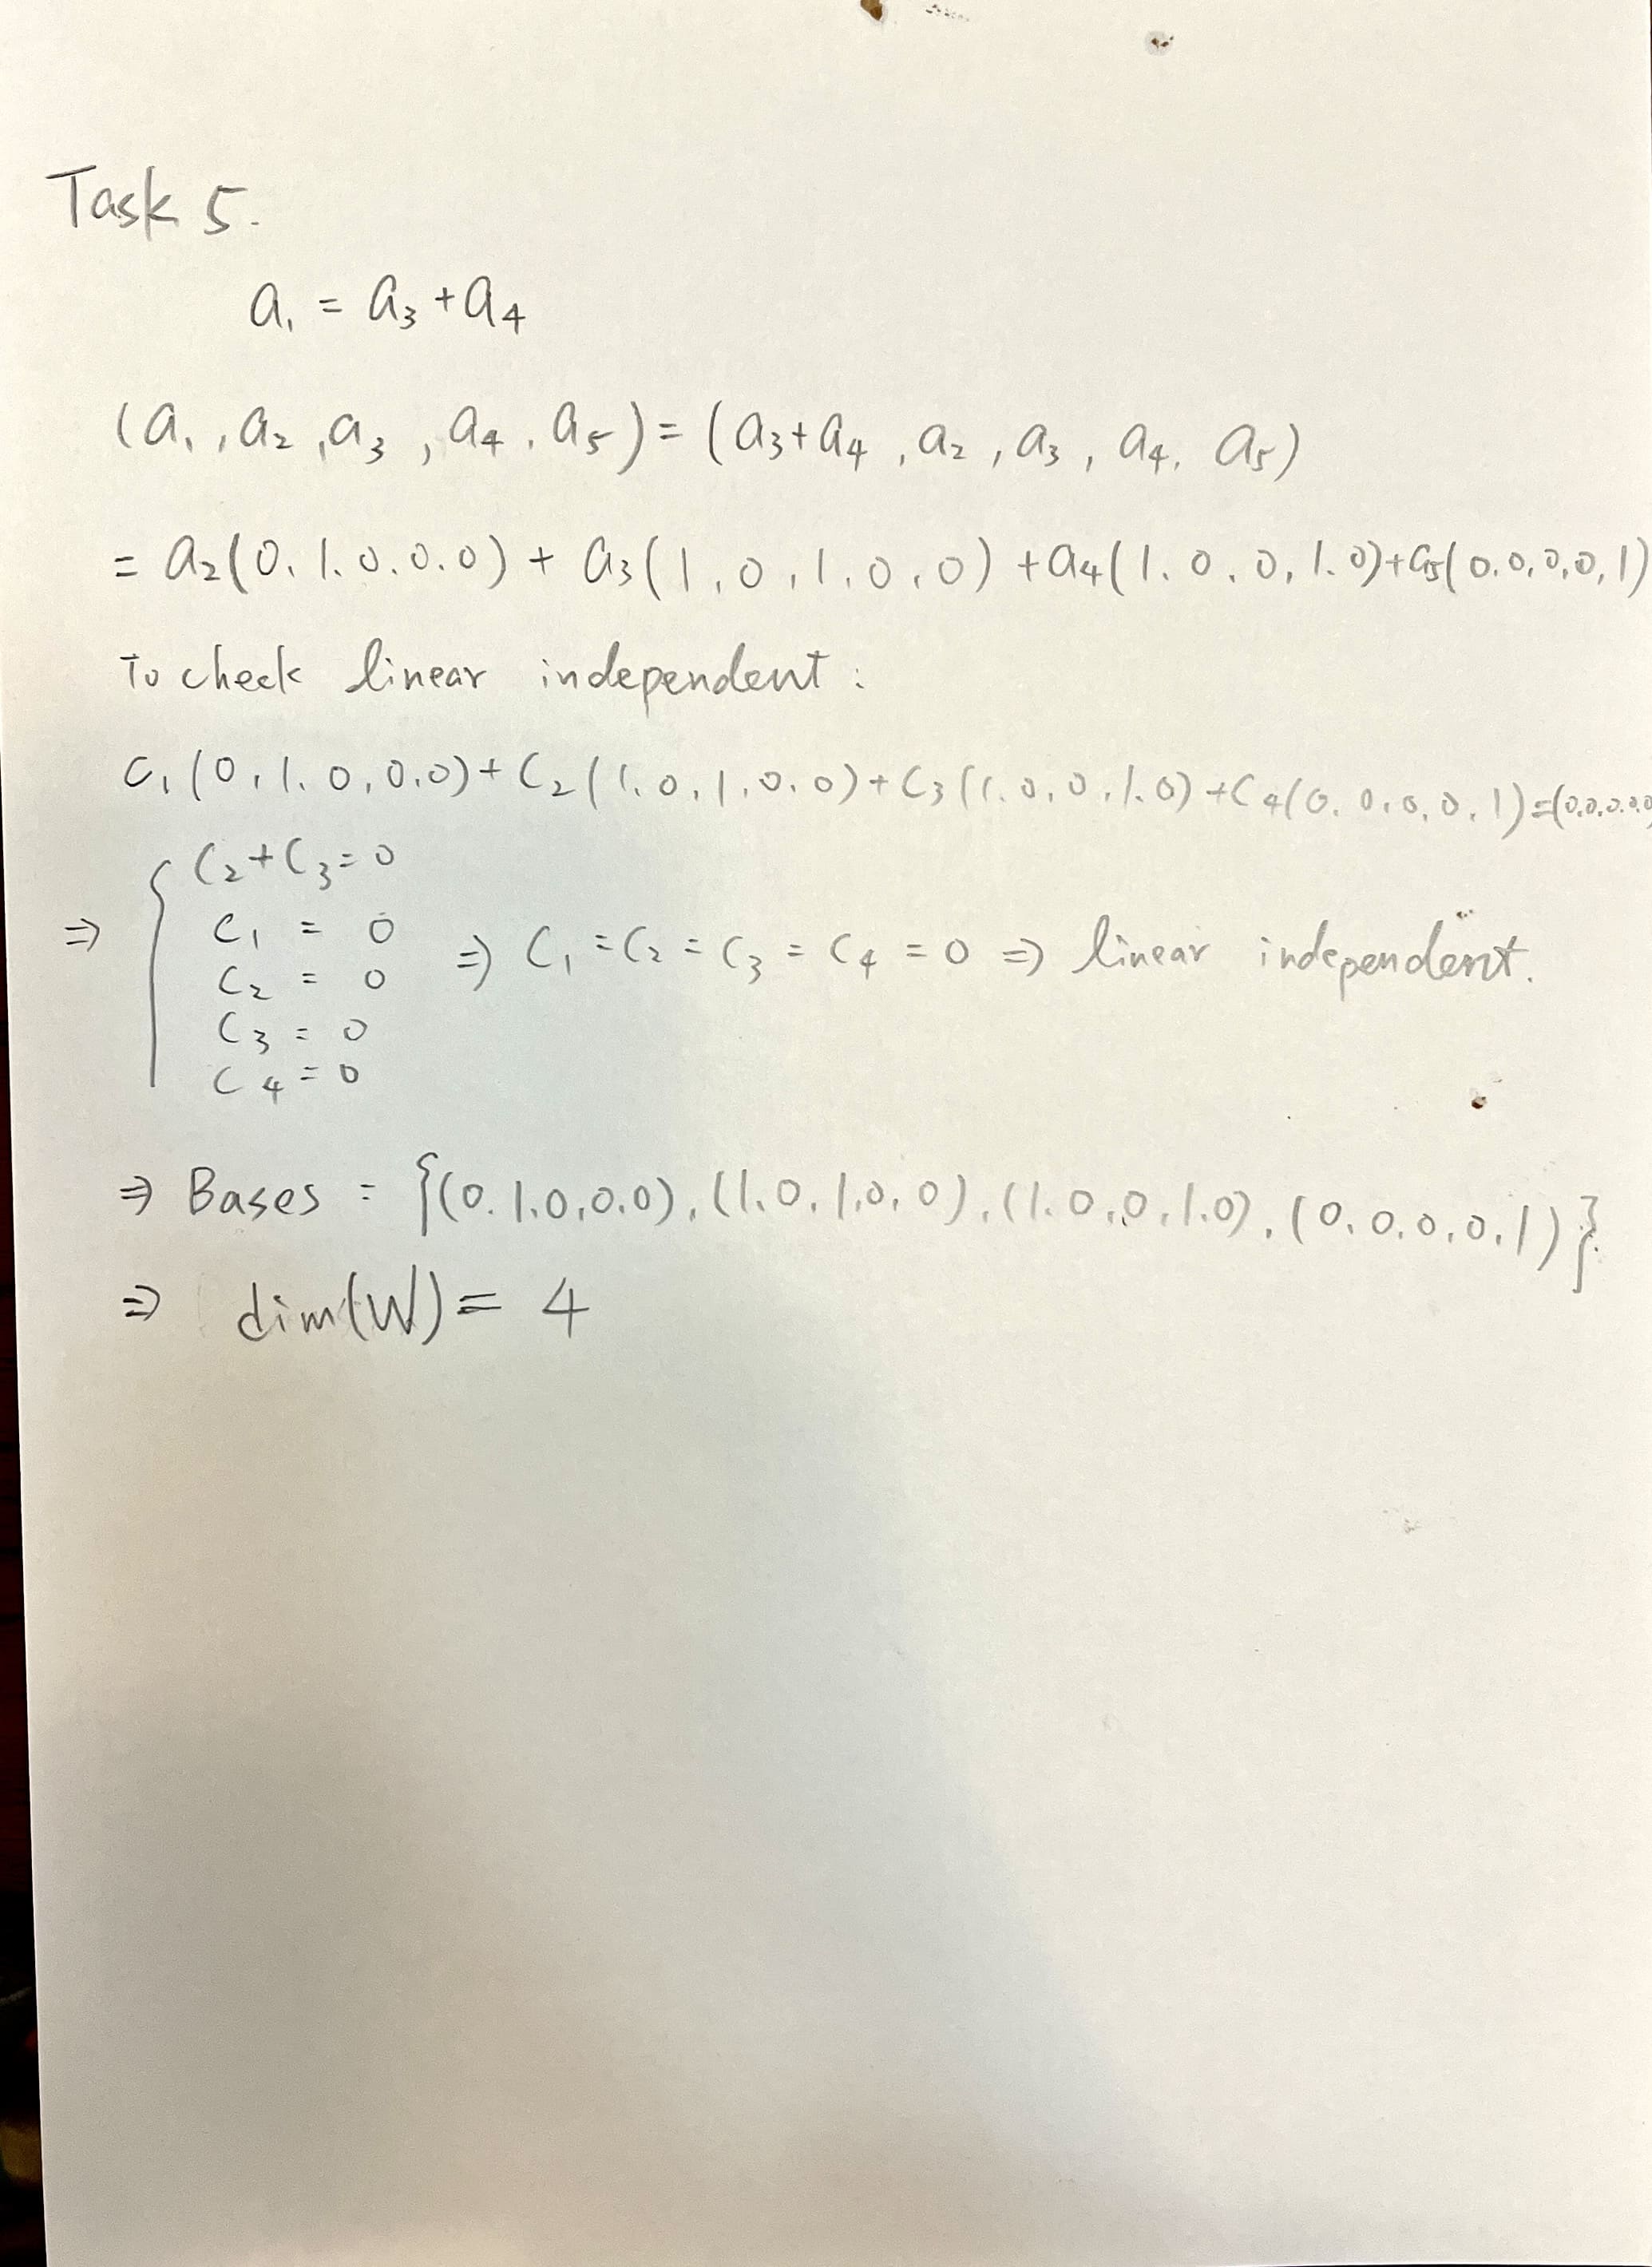 Task 5.
a₁ = a₃ + a₄
(a₁, a₂, a₃, a₄, a₅) = (a₃+a₄, a₂, a₃, a₄, a₅)
= a₂(0, 1, 0, 0, 0) + a₃(1, 0, 1, 0, 0) + a₄(1, 0, 0, 1, 0) + a₅(0, 0, 0, 0, 1)
To check linear independent :
C₁(0, 1, 0, 0, 0) + C₂(1, 0, 1, 0, 0) + C₃(1, 0, 0, 1, 0) + C₄(0, 0, 0, 0, 1) = (0,0,0,0,0)
⇒ { C₂ + C₃ = 0
C₁ = 0
C₂ = 0 ⇒ C₁ = C₂ = C₃ = C₄ = 0 ⇒ linear independent.
C₃ = 0
C₄ = 0
⇒ Bases = {(0, 1, 0, 0, 0), (1, 0, 1, 0, 0), (1, 0, 0, 1, 0), (0, 0, 0, 0, 1)}
⇒ dim(W) = 4